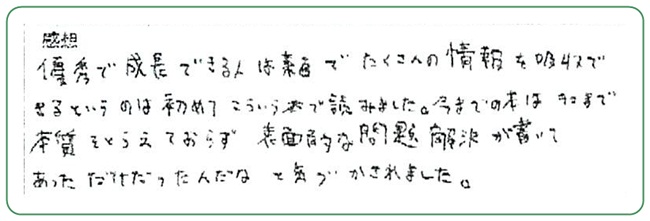 感想
優秀で成長できる人は素直でたくさんの情報を吸収で
きるというのは初めてこういう本で読みました。今までの本はそこまで
本質をとらえておらず 表面的な問題解決が書いて
あっただけだったんだなと気づかされました。